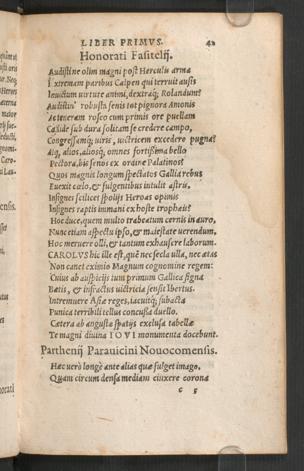 LIBER PRIMVS. 42
Honorati Fasitelij.
Audistine olim magni post Herculis arma
Extremam paribus Calpen qui terruit ausis
Inuictum uirtute animi, dextraq; Rolandum?
Audistin' robusta senis tot pignora Amonis
Ac teneram roseo cum primis ore puellam
Casside sub dura solitam se credere campo,
Congressamq; uiris, uictricem excedere pugna?
Atq; alios, aliosq; omnes fortissima bello
Pectora, bis senos ex ordine Palatinos?
Quos magnis longum spectatos Gallia rebus
Euexit cælo, & fulgentibus intulit astris,
Insignes scilicet spolijs Heroas opimis
Insignes raptis immani ex hoste trophæis?
Hoc duce, quem multo trabeatum cernis in auro,
Nunc etiam aspectu ipso, & maiestate uerendum,
Hoc meruere olli, & tantum exhausere laborum.
CAROLVS hic ille est, quē nec secla ulla, nec ætas
Non canet eximio Magnum cognomine regem:
Cuius ab auspicijs tum primum Gallica signa
Bætis, & infractus uictricia sensit Ibertus.
Intremuere Asiæ reges, iacuitq; subacta
Punica terribili tellus concussa duello.
Cætera ab angusta spatijs exclusa tabella
Te magni diuina IOVI monumenta docebunt.
Parthenij Parauicini Nouocomensis.
Hæc uerò longè ante alias quæ fulget imago,
Quam circum densa mediam cinxere corona